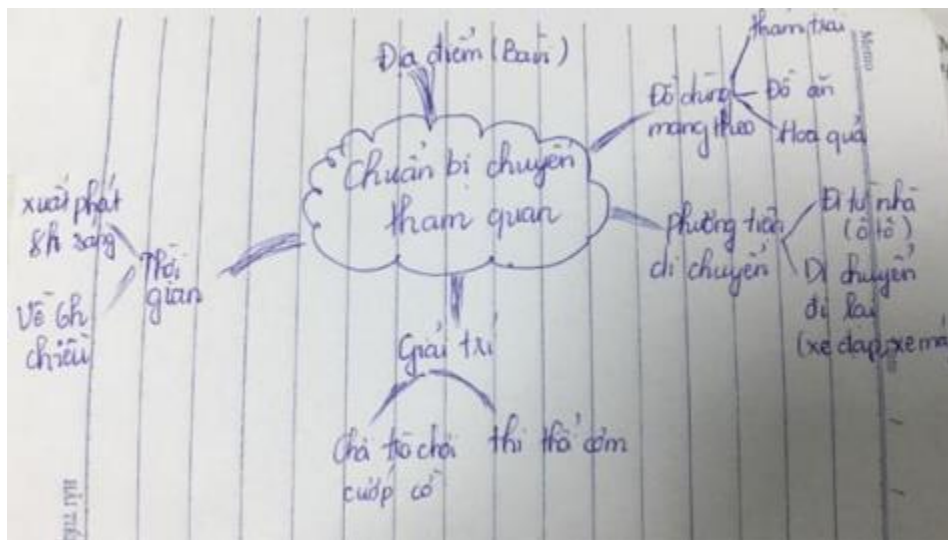 Địa điểm (Bản)
Chuẩn bị chuyến
tham quan
Đồ dùng
mang theo
thảm trải
Đồ ăn
Hoa quả
phương tiện
di chuyển
Đi từ nhà
(ô tô)
Di chuyển
đi lại
(xe đạp, xe má
Giải trí
trò chơi
cướp cờ
thi thổi cơm
Thời
gian
xuất phát
8h sáng
Về 6h
chiều
Memo